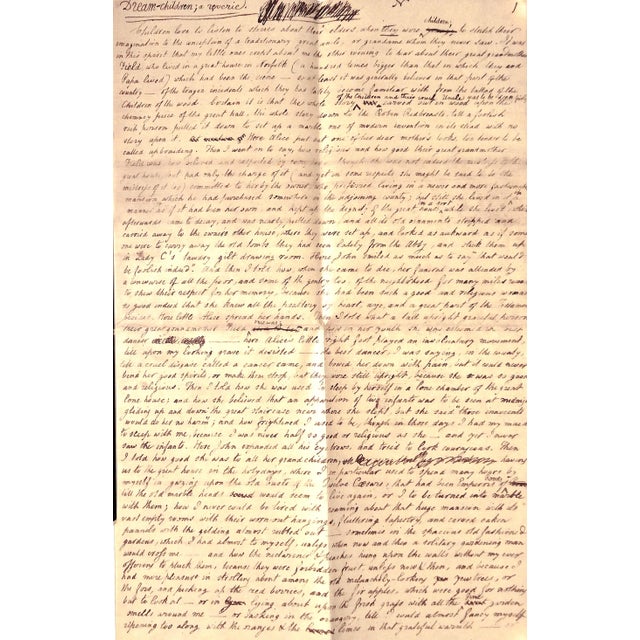 Dream-children; a reverie. 1
children;
Children love to listen to stories about their elders when they were to stretch their
imagination to the conception of a traditionary great uncle, or grandame whom they never saw. It was
in this spirit that my little ones crept about me the other evening to hear about their great grandmother
Field, who lived in a great house in Norfolk (a hundred times bigger than that in which they and
Papa lived) which had been the scene so at least it was generally believed in that part of the
country of the tragic incidents which they had lately become familiar with from the ballad of the
of the Children and their cruel Uncle was to be seen fairly
Children of the wood. Certain it is that the whole story carved out in wood upon the
chimney piece of the great hall, the whole story down to the Robin Redbreasts, till a foolish
rich person pulled it down to set up a marble one of modern invention in its stead with no
story upon it. Here Alice put out one of her dear mother's looks, too tender to be
called upbraiding. Then I went on to say, how religious and how good their great grandmother
Field was, how beloved and respected by every body, though she was not indeed the mistress of this
great house, but had only the charge of it (and yet in some respects she might be said to be the
mistress of it too) committed to her by the owner, who preferred living in a newer and more fashionable
mansion which he had purchased somewhere in the adjoining county; but still she lived in it
in a manner as if it had been her own, and kept up the dignity of the great house while she lived, which
afterwards came to decay, and was nearly pulled down, and all its old ornaments stripped and
carried away to the owners other house, where they were set up, and looked as awkward as if some
one were to carry away the old tombs they had seen lately from the Abby, and stick them up
in Lady C's tawdry gilt drawing room. Here John smiled as much as to say "that would
be foolish indeed". And then I told how, when she came to die, her funeral was attended by
a concourse of all the poor, and some of the gentry too, of the neighbourhood for many miles round
to show their respect for her memory, because she had been such a good and religious woman
so good indeed that she knew all the psaltery by heart, aye, and a great part of the Testament
besides. Here little Alice spread her hands. Then I told what a tall upright graceful person
their great grandmother Field once was; and how in her youth she was esteemed the best
dancer here Alice's little right foot played an involuntary movement,
till upon my looking grave it desisted the best dancer, I was saying, in the county,
till a cruel disease called a cancer came, and bowed her down with pain, but it could never
bend her good spirits, or make them stoop, but they were still upright because she was so good
and religious. Then I told how she was used to sleep by herself in a lone chamber of the great
lone house; and how she believed that an apparition of two infants was to be seen at midnight
gliding up and down the great staircase near where she slept, but she said "those innocents
would do her no harm"; and how frightened I used to be, though in those days I had my maid
to sleep with me, because I was never half so good or religious as she and yet I never
saw the infants. Here John expanded all his eyebrows and tried to look courageous. Then
I told how good she was to all her grandchildren, having
us to the great house in the holydays, where I in particular used to spend many hours by
myself in gazing upon the old busts of the Twelve Caesars, that had been Emperors of Rome
till the old marble heads would seem to live again, or I to be turned into marble
with them; how I never could be tired with roaming about that huge mansion with its
vast empty rooms with their worn out hangings, fluttering tapestry, and carved oaken
pannels with the gilding almost rubbed out sometimes in the spacious old fashioned
gardens, which I had almost to myself, unless when now and then a solitary gardening man
would cross me and how the nectarines & peaches hung upon the walls without my ever
offering to pluck them, because they were forbidden fruit, unless now & then, and because I
had more pleasure in strolling about among the old melancholy-looking yew trees, or
the firs, and picking up the red berries, and the fir apples, which were good for nothing
but to look at or in lying about upon the fresh grass with all the fine garden
smells around me or basking in the orangery, till I could almost fancy myself
ripening too along with the oranges & the limes in that grateful warmth